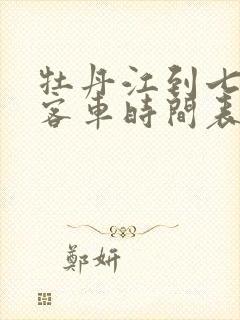 牡丹江到七
客車時間表
鄭妍